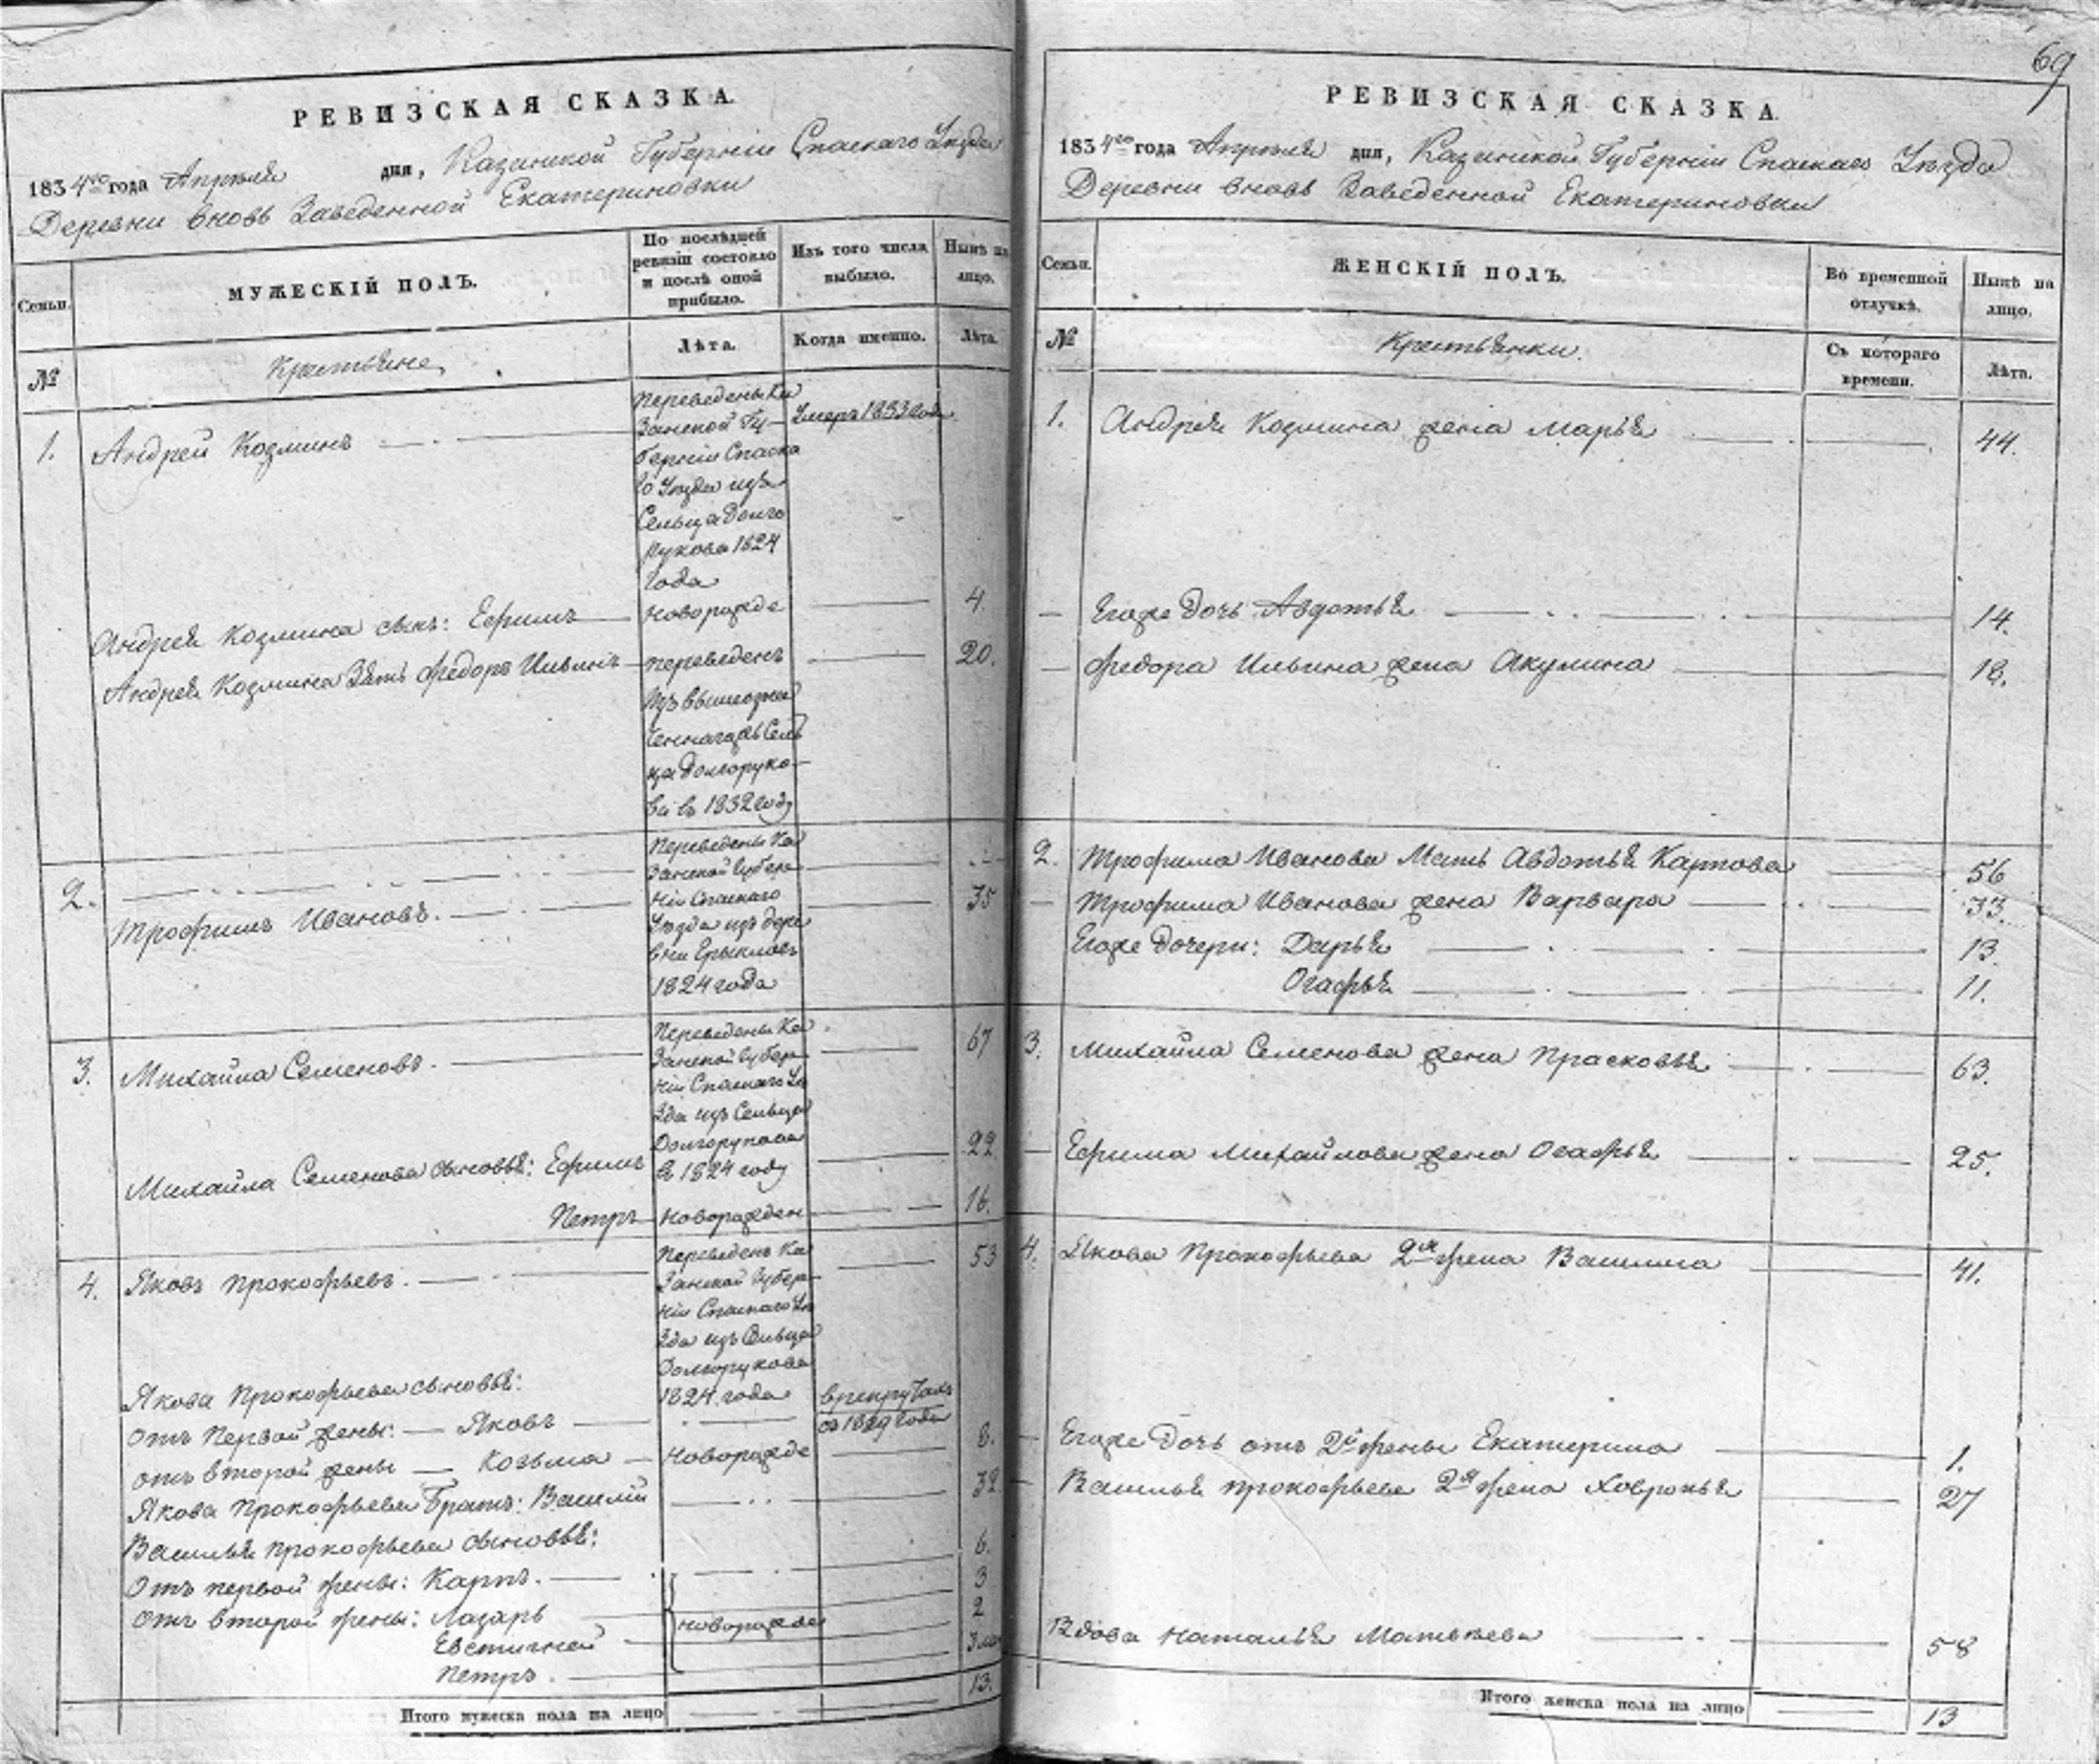 РЕВИЗСКАЯ СКАЗКА.
1834го года Апреля дня, Казанской Губернiи Спаскаго Уѣзда
Деревни вновь Заведенной Екатериновки
Семьи.
МУЖЕСКIЙ ПОЛЪ.
По послѣдней
ревизiи состояло
и послѣ оной
прибыло.
Изъ того числа
выбыло.
Нынѣ на
лицо.
№
Крестьяне
Лѣта.
Когда именно.
Лѣта.
1.
Андрей Козминъ
Переведенъ Ка
занской Гу
бернiи Спаска
го Уѣзда изъ
Сельца Долго
рукова 1824
года
Умеръ 1833 года
Андрея Козмина сынъ: Ефимъ
Новорожде
4.
Андрея Козмина Зять Федоръ Ильинъ
переведенъ
Изъ вышеозна
ченнагожъ Сель
ца Долгоруко
ва въ 1832 году
20.
2.
Трофимъ Ивановъ.
Переведенъ Ка
занской Губер
нiи Спаскаго
Уѣзда изъ дере
вни
1824 года
35
3.
Михайла Семеновъ.
Переведенъ Ка
занской Губер
нiи Спаскаго Уѣ
зда изъ Сельца
Долгорукова
въ 1824 году
67
Михайла Семенова сыновья: Ефимъ
22.
Петръ
Новорожден
16.
4.
Яковъ Прокофьевъ.
Переведенъ Ка
занской Губер
нiи Спаскаго Уѣ
зда изъ Сельца
Долгорукова
1824 года
53
Якова Прокофьева сыновья:
Отъ Первой жены: Яковъ
в рекрутахъ
съ 1829 года
отъ второй жены Козьма
Новорожде
8.
Якова Прокофьева Братъ: Василiй
32
Василья Прокофьева сыновья:
Отъ первой жены: Карпъ.
6.
отъ второй жены: Лазарь
3
Евстигней
новорожде
2
Петръ.
3
Итого мужеска пола на лицо
13.
69
РЕВИЗСКАЯ СКАЗКА.
1834го года Апреля дня, Казанской Губернiи Спаскаго Уѣзда
Деревни вновь Заведенной Екатериновки
Семьи.
ЖЕНСКIЙ ПОЛЪ.
Во временной
отлучкѣ.
Нынѣ на
лицо.
№
Крестьянки.
Съ котораго
времени.
Лѣта.
1.
Андрея Козмина жена Марья
44.
Егоже Дочь Авдотья
14.
Федора Ильина жена Акулина
18.
2.
Трофима Иванова Мать Авдотья Карпова
56
Трофима Иванова жена Варвара
33.
Егоже Дочери: Дарья
13.
Огафья
11.
3.
Михайла Семенова жена Прасковья
63.
Ефима Михайлова жена Огафья
25.
4.
Якова Прокофьева 2я жена Василиса
41.
Егоже Дочь отъ 2й жены Екатерина
1.
Василья Прокофьева 2я жена Ховронья
27
Вдова Наталья Матвѣева
58
Итого женска пола на лицо
13